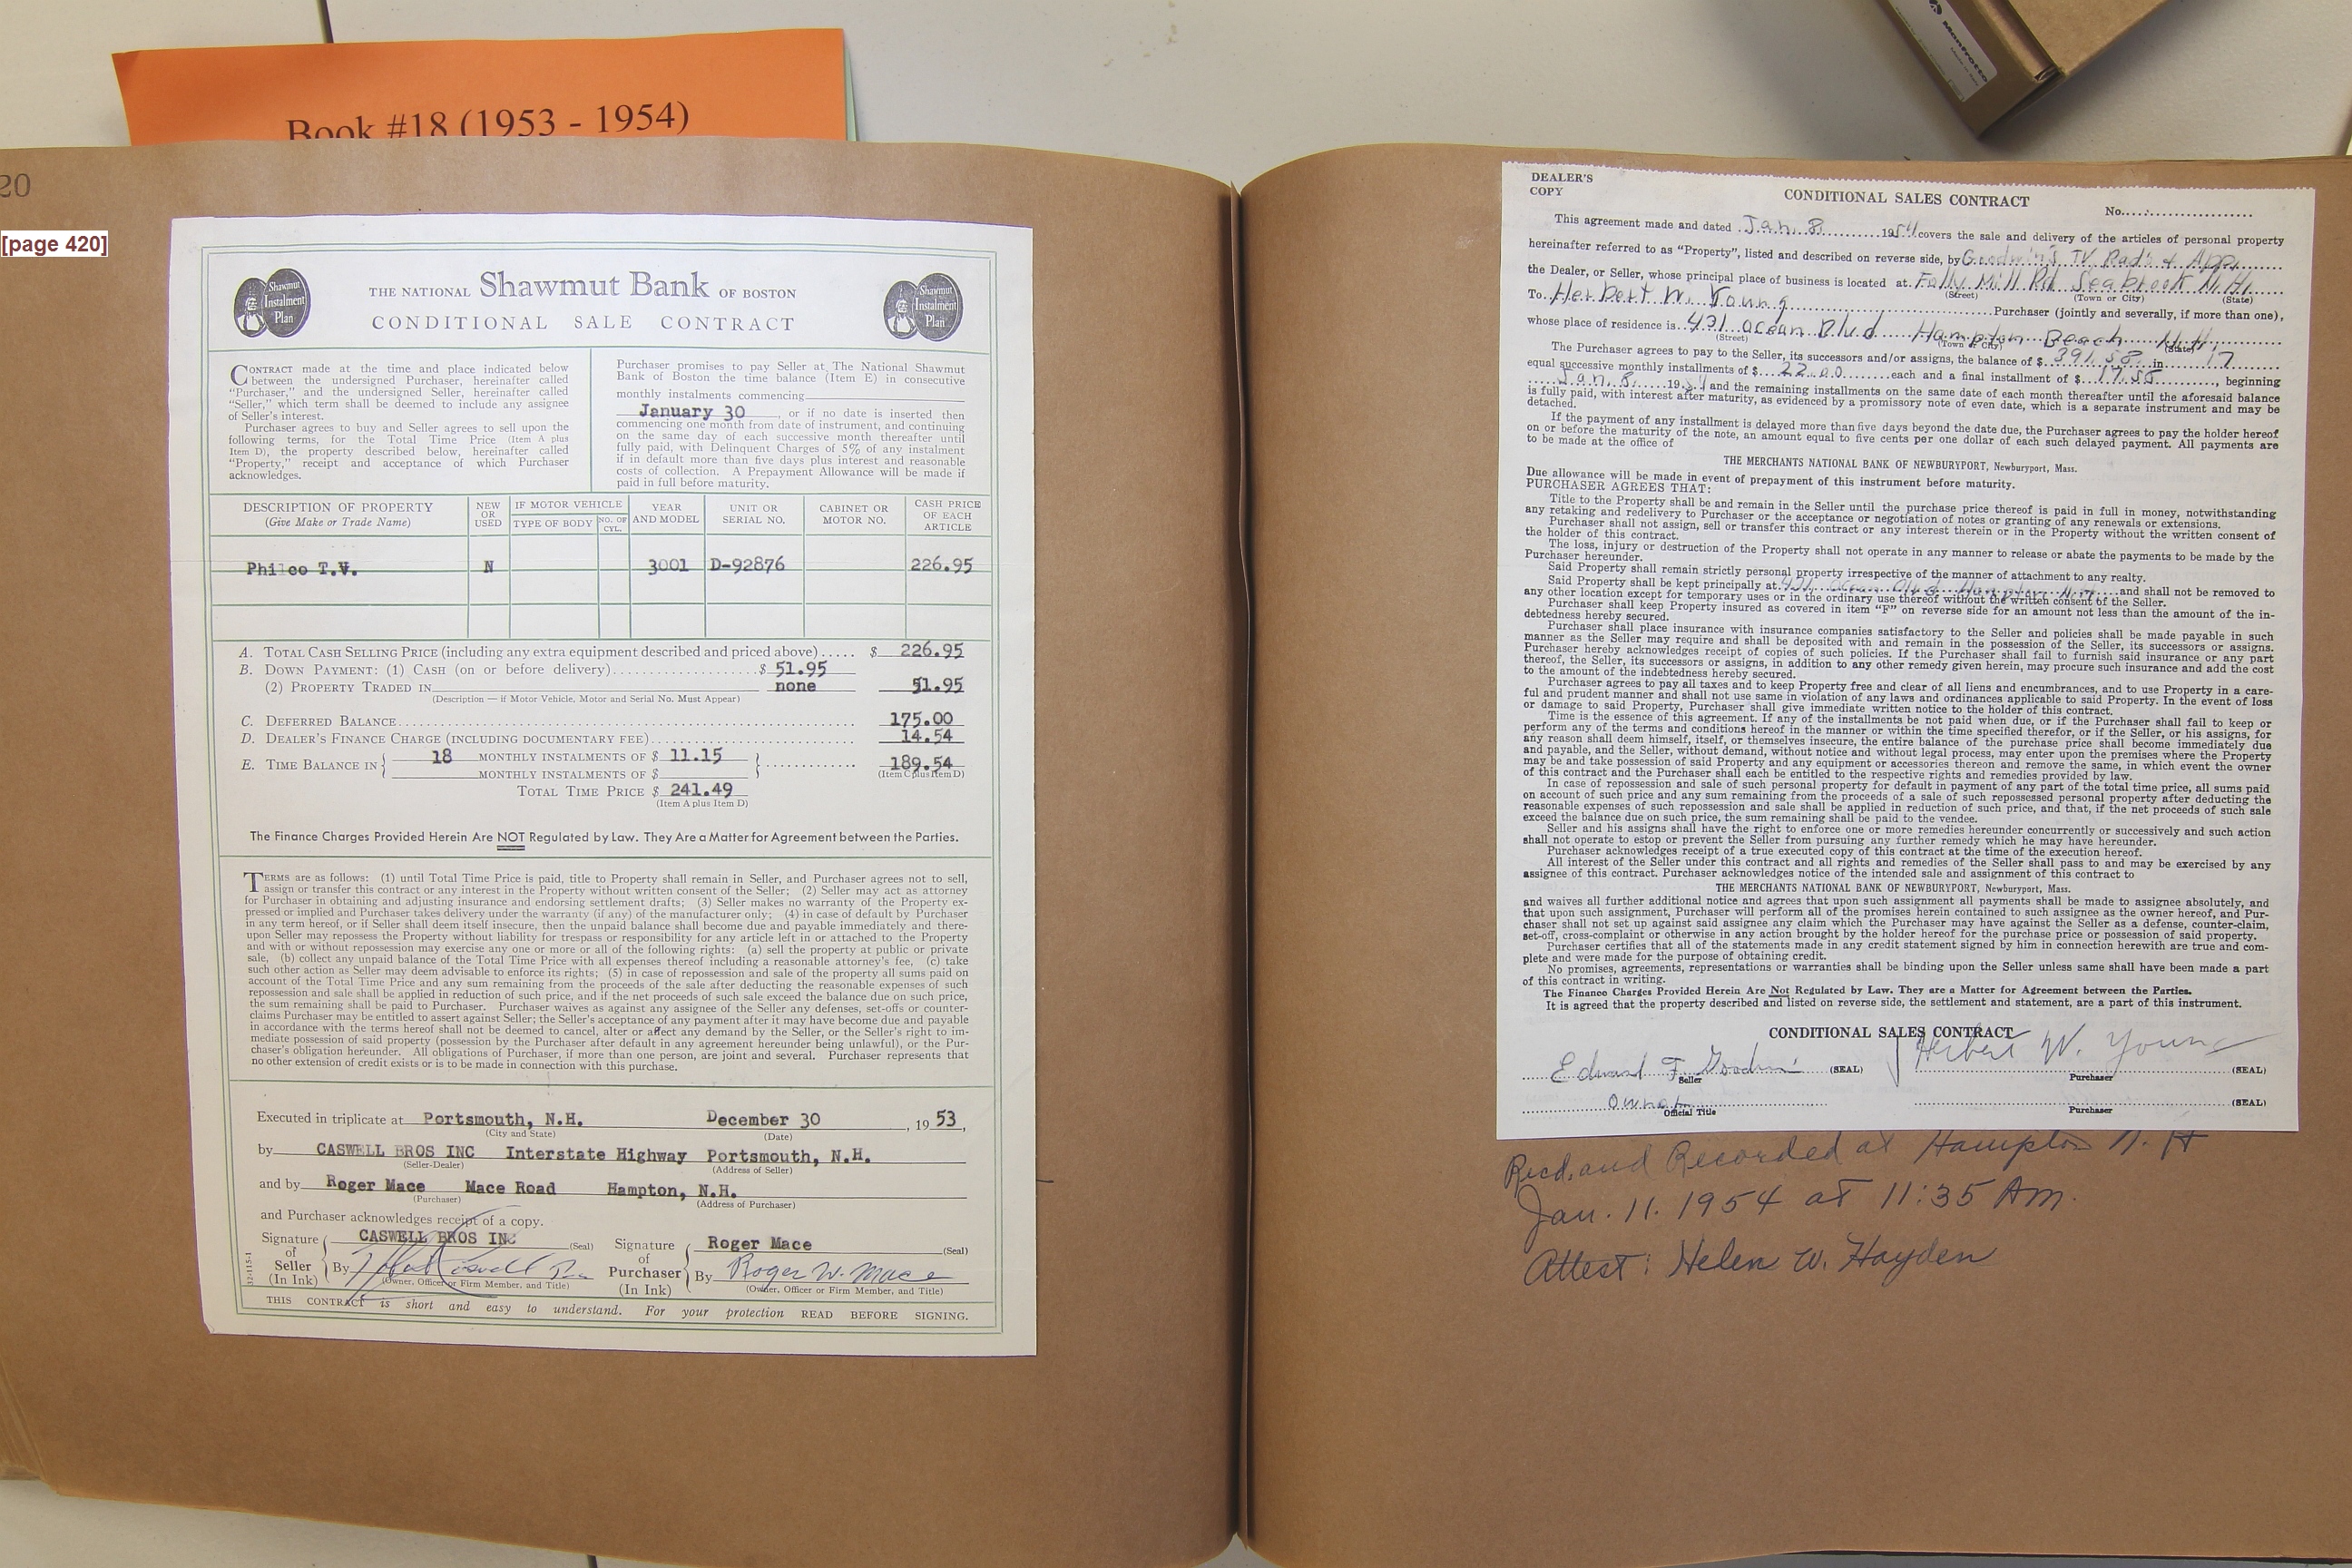 Book #18 (1953 - 1954)
Manfrotto
20
[page 420]
Shawmut
Instalment
Plan
THE NATIONAL Shawmut Bank OF BOSTON
CONDITIONAL SALE CONTRACT
Shawmut
Instalment
Plan
CONTRACT made at the time and place indicated below
between the undersigned Purchaser, hereinafter called
"Purchaser," and the undersigned Seller, hereinafter called
"Seller," which term shall be deemed to include any assignee
of Seller's interest.
Purchaser agrees to buy and Seller agrees to sell upon the
following terms, for the Total Time Price (Item A plus
Item D), the property described below, hereinafter called
"Property," receipt and acceptance of which Purchaser
acknowledges.
Purchaser promises to pay Seller at The National Shawmut
Bank of Boston the time balance (Item E) in consecutive
monthly instalments commencing
January 30, or if no date is inserted then
commencing one month from date of instrument, and continuing
on the same day of each successive month thereafter until
fully paid, with Delinquent Charges of 5% of any instalment
if in default more than five days plus interest and reasonable
costs of collection. A Prepayment Allowance will be made if
paid in full before maturity.
DESCRIPTION OF PROPERTY
(Give Make or Trade Name)
NEW
OR
USED
IF MOTOR VEHICLE
TYPE OF BODY
NO. OF
CYL.
YEAR
AND MODEL
UNIT OR
SERIAL NO.
CABINET OR
MOTOR NO.
CASH PRICE
OF EACH
ARTICLE
Philco T.V. N 3001 D-92876 226.95
A. TOTAL CASH SELLING PRICE (including any extra equipment described and priced above)..... $ 226.95
B. DOWN PAYMENT: (1) CASH (on or before delivery)........................ $ 51.95
(2) PROPERTY TRADED IN none 51.95
(Description — if Motor Vehicle, Motor and Serial No. Must Appear)
C. DEFERRED BALANCE................ 175.00
D. DEALER'S FINANCE CHARGE (INCLUDING DOCUMENTARY FEE)................ 14.54
E. TIME BALANCE IN { 18 MONTHLY INSTALMENTS OF $ 11.15 } ............ 189.54
MONTHLY INSTALMENTS OF $ (Item C plus Item D)
TOTAL TIME PRICE $ 241.49
(Item A plus Item D)
The Finance Charges Provided Herein Are NOT Regulated by Law. They Are a Matter for Agreement between the Parties.
TERMS are as follows: (1) until Total Time Price is paid, title to Property shall remain in Seller, and Purchaser agrees not to sell,
assign or transfer this contract or any interest in the Property without written consent of the Seller; (2) Seller may act as attorney
for Purchaser in obtaining and adjusting insurance and endorsing settlement drafts; (3) Seller makes no warranty of the Property ex-
pressed or implied and Purchaser takes delivery under the warranty (if any) of the manufacturer only; (4) in case of default by Purchaser
in any term hereof, or if Seller shall deem itself insecure, then the unpaid balance shall become due and payable immediately and there-
upon Seller may repossess the Property without liability for trespass or responsibility for any article left in or attached to the Property
and with or without repossession may exercise any one or more or all of the following rights: (a) sell the property at public or private
sale, (b) collect any unpaid balance of the Total Time Price with all expenses thereof including a reasonable attorney's fee, (c) take
such other action as Seller may deem advisable to enforce its rights; (5) in case of repossession and sale of the property all sums paid on
account of the Total Time Price and any sum remaining from the proceeds of the sale after deducting the reasonable expenses of such
repossession and sale shall be applied in reduction of such price, and if the net proceeds of such sale exceed the balance due on such price,
the sum remaining shall be paid to Purchaser. Purchaser waives as against any assignee of the Seller any defenses, set-offs or counter-
claims Purchaser may be entitled to assert against Seller; the Seller's acceptance of any payment after it may have become due and payable
in accordance with the terms hereof shall not be deemed to cancel, alter or affect any demand by the Seller, or the Seller's right to im-
mediate possession of said property (possession by the Purchaser after default in any agreement hereunder being unlawful), or the Pur-
chaser's obligation hereunder. All obligations of Purchaser, if more than one person, are joint and several. Purchaser represents that
no other extension of credit exists or is to be made in connection with this purchase.
Executed in triplicate at Portsmouth, N.H. December 30, 1953,
(City and State) (Date)
by CASWELL BROS INC Interstate Highway Portsmouth, N.H.
(Seller-Dealer) (Address of Seller)
and by Roger Mace Mace Road Hampton, N.H.
(Purchaser) (Address of Purchaser)
and Purchaser acknowledges receipt of a copy.
Signature of Seller (In Ink) CASWELL BROS INC (Seal)
By
(Owner, Officer or Firm Member, and Title)
Signature of Purchaser (In Ink) Roger Mace (Seal)
By Roger W. Mace
(Owner, Officer or Firm Member, and Title)
THIS CONTRACT is short and easy to understand. For your protection READ BEFORE SIGNING.
DEALER'S
COPY
CONDITIONAL SALES CONTRACT
No.
This agreement made and dated Jan. 8 1954 covers the sale and delivery of the articles of personal property
hereinafter referred to as "Property", listed and described on reverse side, by Goodwin's TV, Rad's & App.
the Dealer, or Seller, whose principal place of business is located at Folly Mill Rd Seabrook N.H.
(Street) (Town or City) (State)
To Herbert W. Young Purchaser (jointly and severally, if more than one),
whose place of residence is 431 Ocean Blvd Hampton Beach N.H.
(Street) (Town or City) (State)
The Purchaser agrees to pay to the Seller, its successors and/or assigns, the balance of $ 391.58 in 17
equal successive monthly installments of $ 22.00 each and a final installment of $ 17.58, beginning
Jan. 8. 1954 and the remaining installments on the same date of each month thereafter until the aforesaid balance
is fully paid, with interest after maturity, as evidenced by a promissory note of even date, which is a separate instrument and may be
detached.
If the payment of any installment is delayed more than five days beyond the date due, the Purchaser agrees to pay the holder hereof
on or before the maturity of the note, an amount equal to five cents per one dollar of each such delayed payment. All payments are
to be made at the office of
THE MERCHANTS NATIONAL BANK OF NEWBURYPORT, Newburyport, Mass.
Due allowance will be made in event of prepayment of this instrument before maturity.
PURCHASER AGREES THAT:
Title to the Property shall be and remain in the Seller until the purchase price thereof is paid in full in money, notwithstanding
any retaking and redelivery to Purchaser or the acceptance or negotiation of notes or granting of any renewals or extensions.
Purchaser shall not assign, sell or transfer this contract or any interest therein or in the Property without the written consent of
the holder of this contract.
The loss, injury or destruction of the Property shall not operate in any manner to release or abate the payments to be made by the
Purchaser hereunder.
Said Property shall remain strictly personal property irrespective of the manner of attachment to any realty.
Said Property shall be kept principally at 431 Ocean Blvd Hampton N.H. and shall not be removed to
any other location except for temporary uses or in the ordinary use thereof without the written consent of the Seller.
Purchaser shall keep Property insured as covered in item "F" on reverse side for an amount not less than the amount of the in-
debtedness hereby secured.
Purchaser shall place insurance with insurance companies satisfactory to the Seller and policies shall be made payable in such
manner as the Seller may require and shall be deposited with and remain in the possession of the Seller, its successors or assigns.
Purchaser hereby acknowledges receipt of copies of such policies. If the Purchaser shall fail to furnish said insurance or any part
thereof, the Seller, its successors or assigns, in addition to any other remedy given herein, may procure such insurance and add the cost
to the amount of the indebtedness hereby secured.
Purchaser agrees to pay all taxes and to keep Property free and clear of all liens and encumbrances, and to use Property in a care-
ful and prudent manner and shall not use same in violation of any laws and ordinances applicable to said Property. In the event of loss
or damage to said Property, Purchaser shall give immediate written notice to the holder of this contract.
Time is the essence of this agreement. If any of the installments be not paid when due, or if the Purchaser shall fail to keep or
perform any of the terms and conditions hereof in the manner or within the time specified therefor, or if the Seller, or his assigns, for
any reason shall deem himself, itself, or themselves insecure, the entire balance of the purchase price shall become immediately due
and payable, and the Seller, without demand, without notice and without legal process, may enter upon the premises where the Property
may be and take possession of said Property and any equipment or accessories thereon and remove the same, in which event the owner
of this contract and the Purchaser shall each be entitled to the respective rights and remedies provided by law.
In case of repossession and sale of such personal property for default in payment of any part of the total time price, all sums paid
on account of such price and any sum remaining from the proceeds of a sale of such repossessed personal property after deducting the
reasonable expenses of such repossession and sale shall be applied in reduction of such price, and that, if the net proceeds of such sale
exceed the balance due on such price, the sum remaining shall be paid to the vendee.
Seller and his assigns shall have the right to enforce one or more remedies hereunder concurrently or successively and such action
shall not operate to estop or prevent the Seller from pursuing any further remedy which he may have hereunder.
Purchaser acknowledges receipt of a true executed copy of this contract at the time of the execution hereof.
All interest of the Seller under this contract and all rights and remedies of the Seller shall pass to and may be exercised by any
assignee of this contract. Purchaser acknowledges notice of the intended sale and assignment of this contract to
THE MERCHANTS NATIONAL BANK OF NEWBURYPORT, Newburyport, Mass.
and waives all further additional notice and agrees that upon such assignment all payments shall be made to assignee absolutely, and
that upon such assignment, Purchaser will perform all of the promises herein contained to such assignee as the owner hereof, and Pur-
chaser shall not set up against said assignee any claim which the Purchaser may have against the Seller as a defense, counter-claim,
set-off, cross-complaint or otherwise in any action brought by the holder hereof for the purchase price or possession of said property.
Purchaser certifies that all of the statements made in any credit statement signed by him in connection herewith are true and com-
plete and were made for the purpose of obtaining credit.
No promises, agreements, representations or warranties shall be binding upon the Seller unless same shall have been made a part
of this contract in writing.
The Finance Charges Provided Herein Are Not Regulated by Law. They are a Matter for Agreement between the Parties.
It is agreed that the property described and listed on reverse side, the settlement and statement, are a part of this instrument.
CONDITIONAL SALES CONTRACT
Edward F. Goodwin (SEAL) Herbert W. Young (SEAL)
Seller Purchaser
Owner (SEAL)
Official Title Purchaser
Recd. and Recorded at Hampton N. H
Jan. 11. 1954 at 11:35 Am.
Attest: Helen W. Hayden